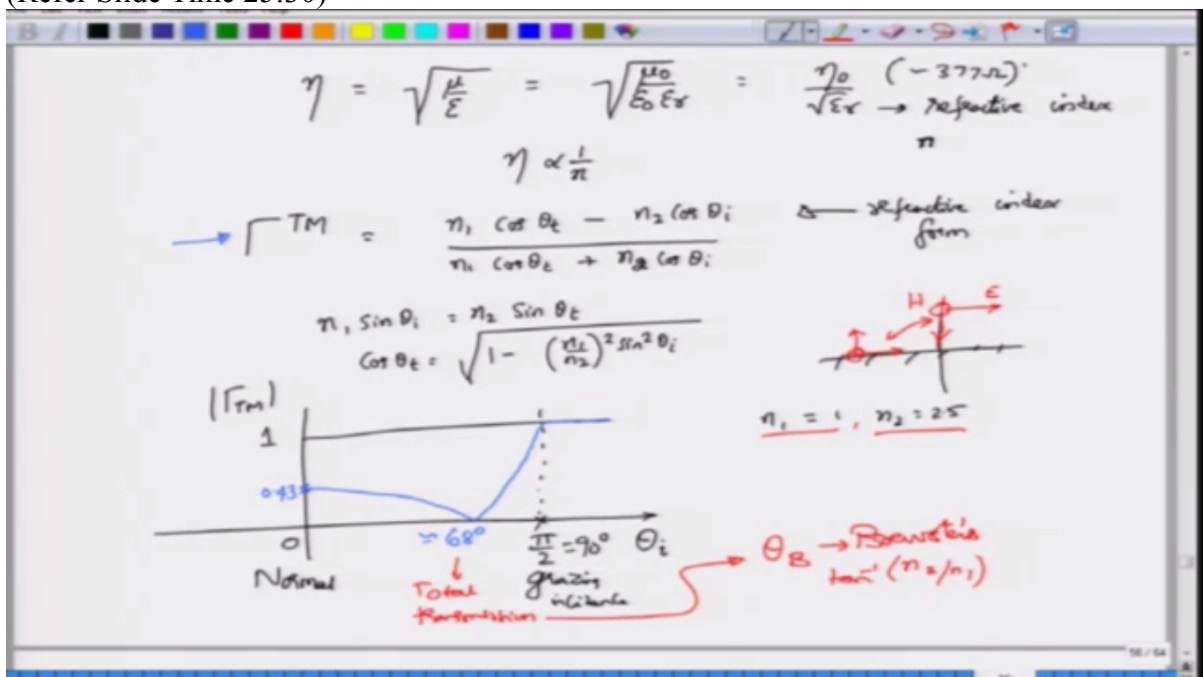 (Refer Slide Time 25:50)
η = √(μ/ε) = √(μ0/(ε0 εr)) = η0/√εr (~377Ω)
→ refractive index
n
η ∝ 1/n
→ Γ^TM = (n1 cos θt − n2 cos θi)/(n1 cos θt + n2 cos θi) ← refractive index
form
n1 sin θi = n2 sin θt
cos θt = √(1 − (n1/n2)² sin² θi)
H E
|ΓTM|
n1 = 1, n2 = 2.5
1
0.43
0 ≈ 68° π/2 = 90° θi
Normal Total transmission grazing incidence
θB → Brewster's
tan⁻¹(n2/n1)
56 / 64